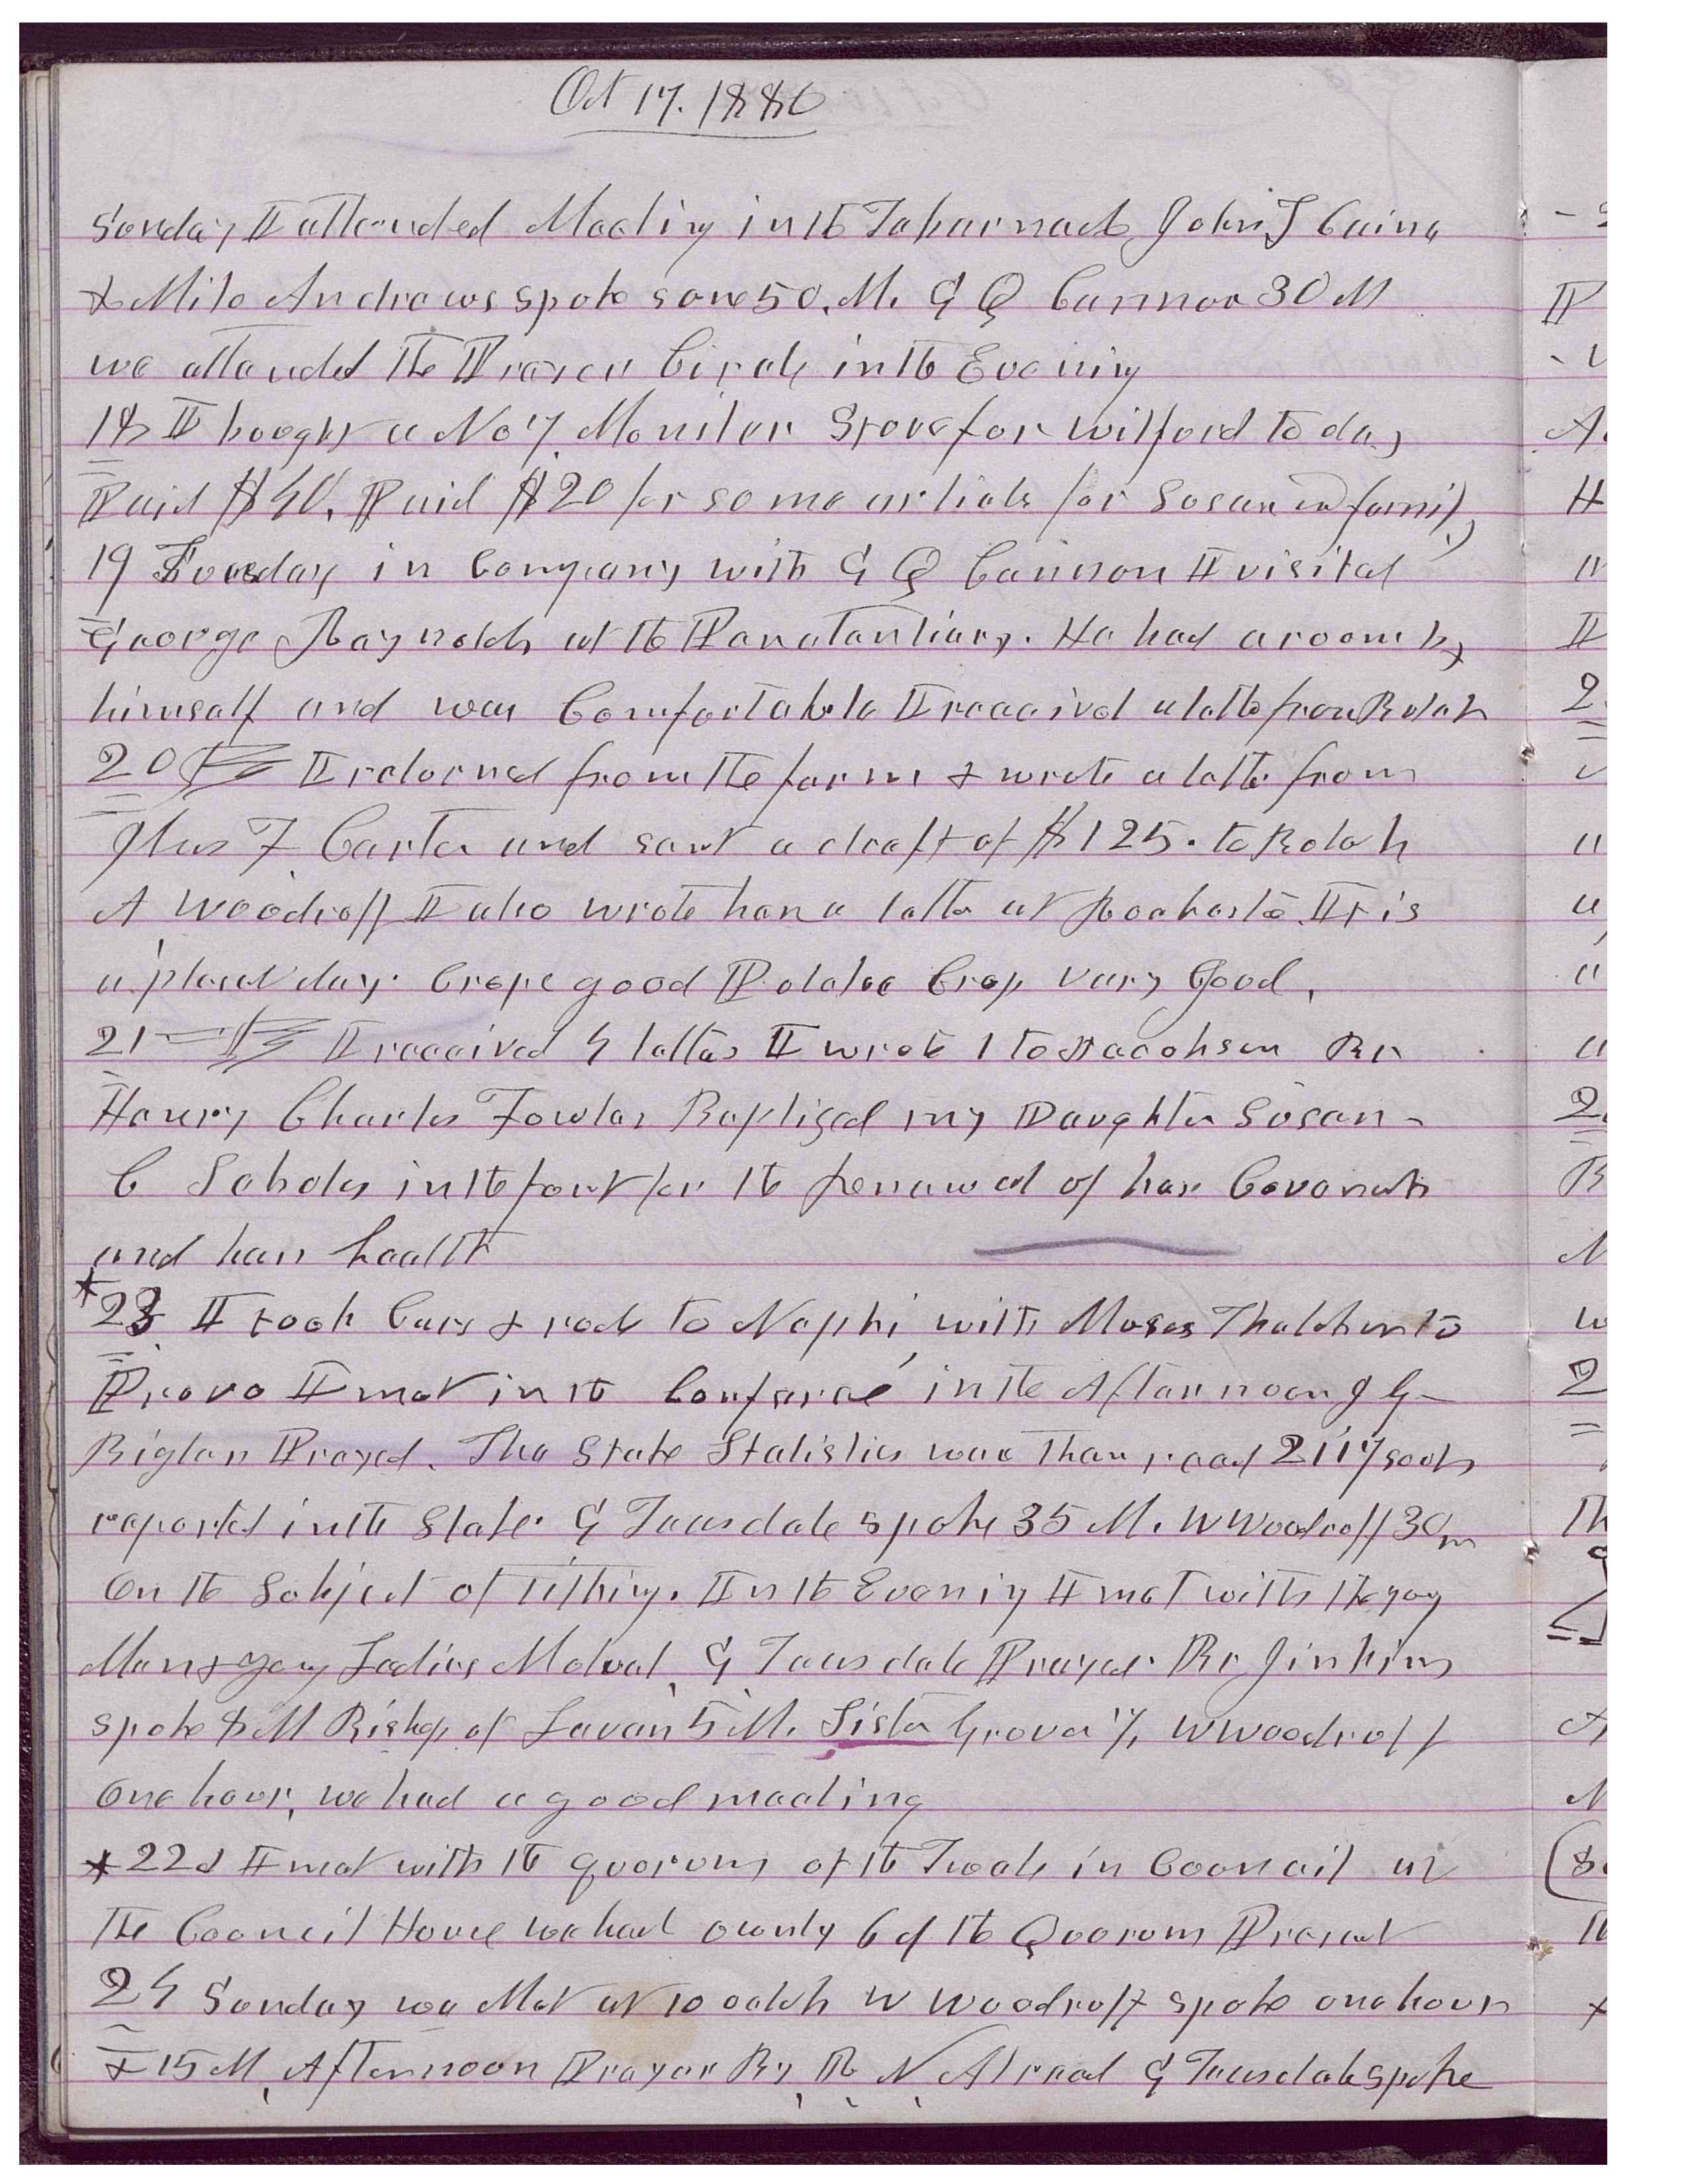 Oct 17. 1880
Sunday I attended Meeting in the Tabernacle John T Caine
& Milo Andrews spoke some 50. M. G Q Cannon 30 M
we attended the Prayer Circle in the Evening
18 I bought a No 7 Monitor Stove for Wilford to day
Paid $40. Paid $20 for some articles for Susan and family
19 Tuesday in Company with G Q Cannon I visited
George Raynolds at the Penatentiary. He had a room by
himself and was Comfortable I received a letter from Bulah
20 I returned from the farm & wrote a letter from
F Carter and sent a draft of $125. to Bulah
A Woodruff I also wrote her a letter at Rochester It is
a pleasant day. Crops good Potatoe Crop very Good.
21 I received 4 letters I wrote 1 to Jacobsen Br
Henry Charles Fowler Baptized my Daughter Susan
C Scholes in the font for the renewal of her Covenants
and her health
*23 I took Cars & rode to Nephi, with Moses Thatcher to
Provo I met in the Conference in the Afternoon J G
Biglar Prayed. The Stake Statistics was then read 2117 souls
reported in the Stake. G Teasdale spoke 35 M. W Woodruff 30 m
On the Subject of Tithing. In the Evening I met with the yong
Men & yong Ladies Mutual, G Teasdale Prayed. Br Jinkins
spoke 8 M Bishop of Levan 5 M. Sister Grover 7, W Woodruff
One hour, we had a good meeting
*22d I met with the quorum of the Twelve in Council in
The Council House we had ownly 6 of the Quorum Present
24 Sunday we Met at 10 oclok W Woodruff spoke one hour
& 15 M, Afternoon Prayer By R N Alread G Teasdale spoke